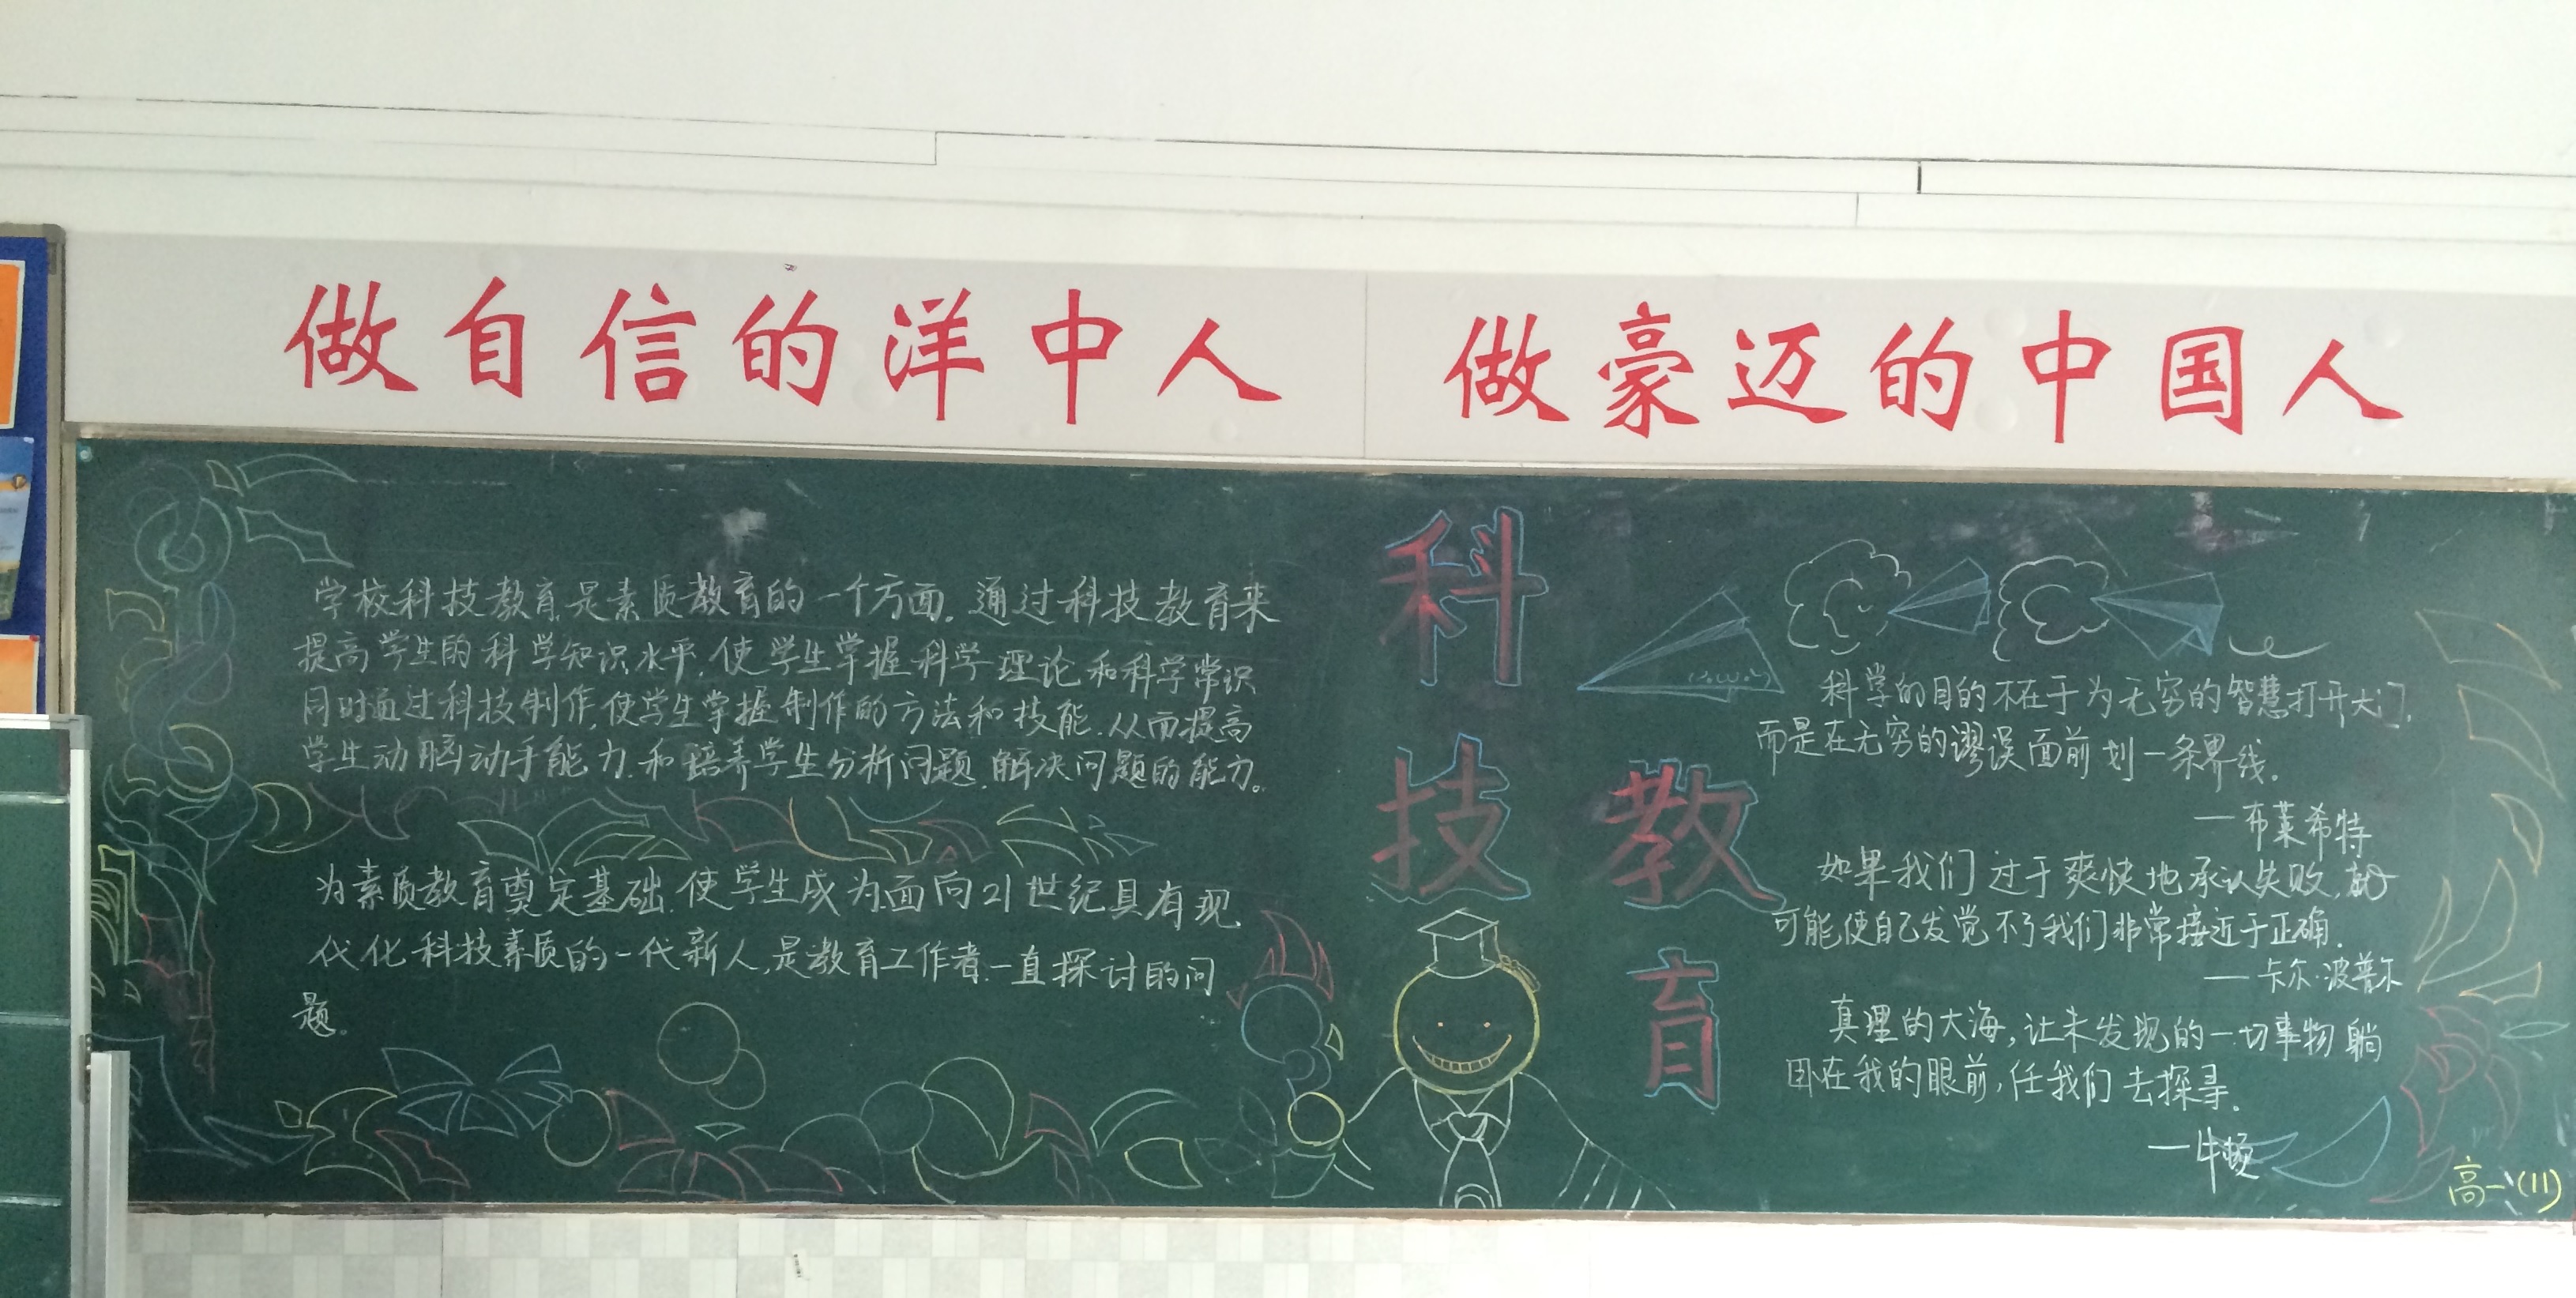 做自信的洋中人 做豪迈的中国人
学校科技教育是素质教育的一个方面.通过科技教育来
提高学生的科学知识水平.使学生掌握科学理论和科学常识
同时通过科技制作,使学生掌握制作的方法和技能.从而提高
学生动脑动手能力.和培养学生分析问题.解决问题的能力。
为素质教育奠定基础.使学生成为面向21世纪具有现
代化科技素质的一代新人,是教育工作者一直探讨的问
题。
科技
教育
科学的目的不在于为无穷的智慧打开大门,
而是在无穷的谬误面前划一条界线.
—布莱希特
如果我们过于爽快地承认失败,就
可能使自己发觉不了我们非常接近于正确.
—卡尔·波普尔
真理的大海,让未发现的一切事物躺
卧在我的眼前,任我们去探寻.
—牛顿
高一(11)